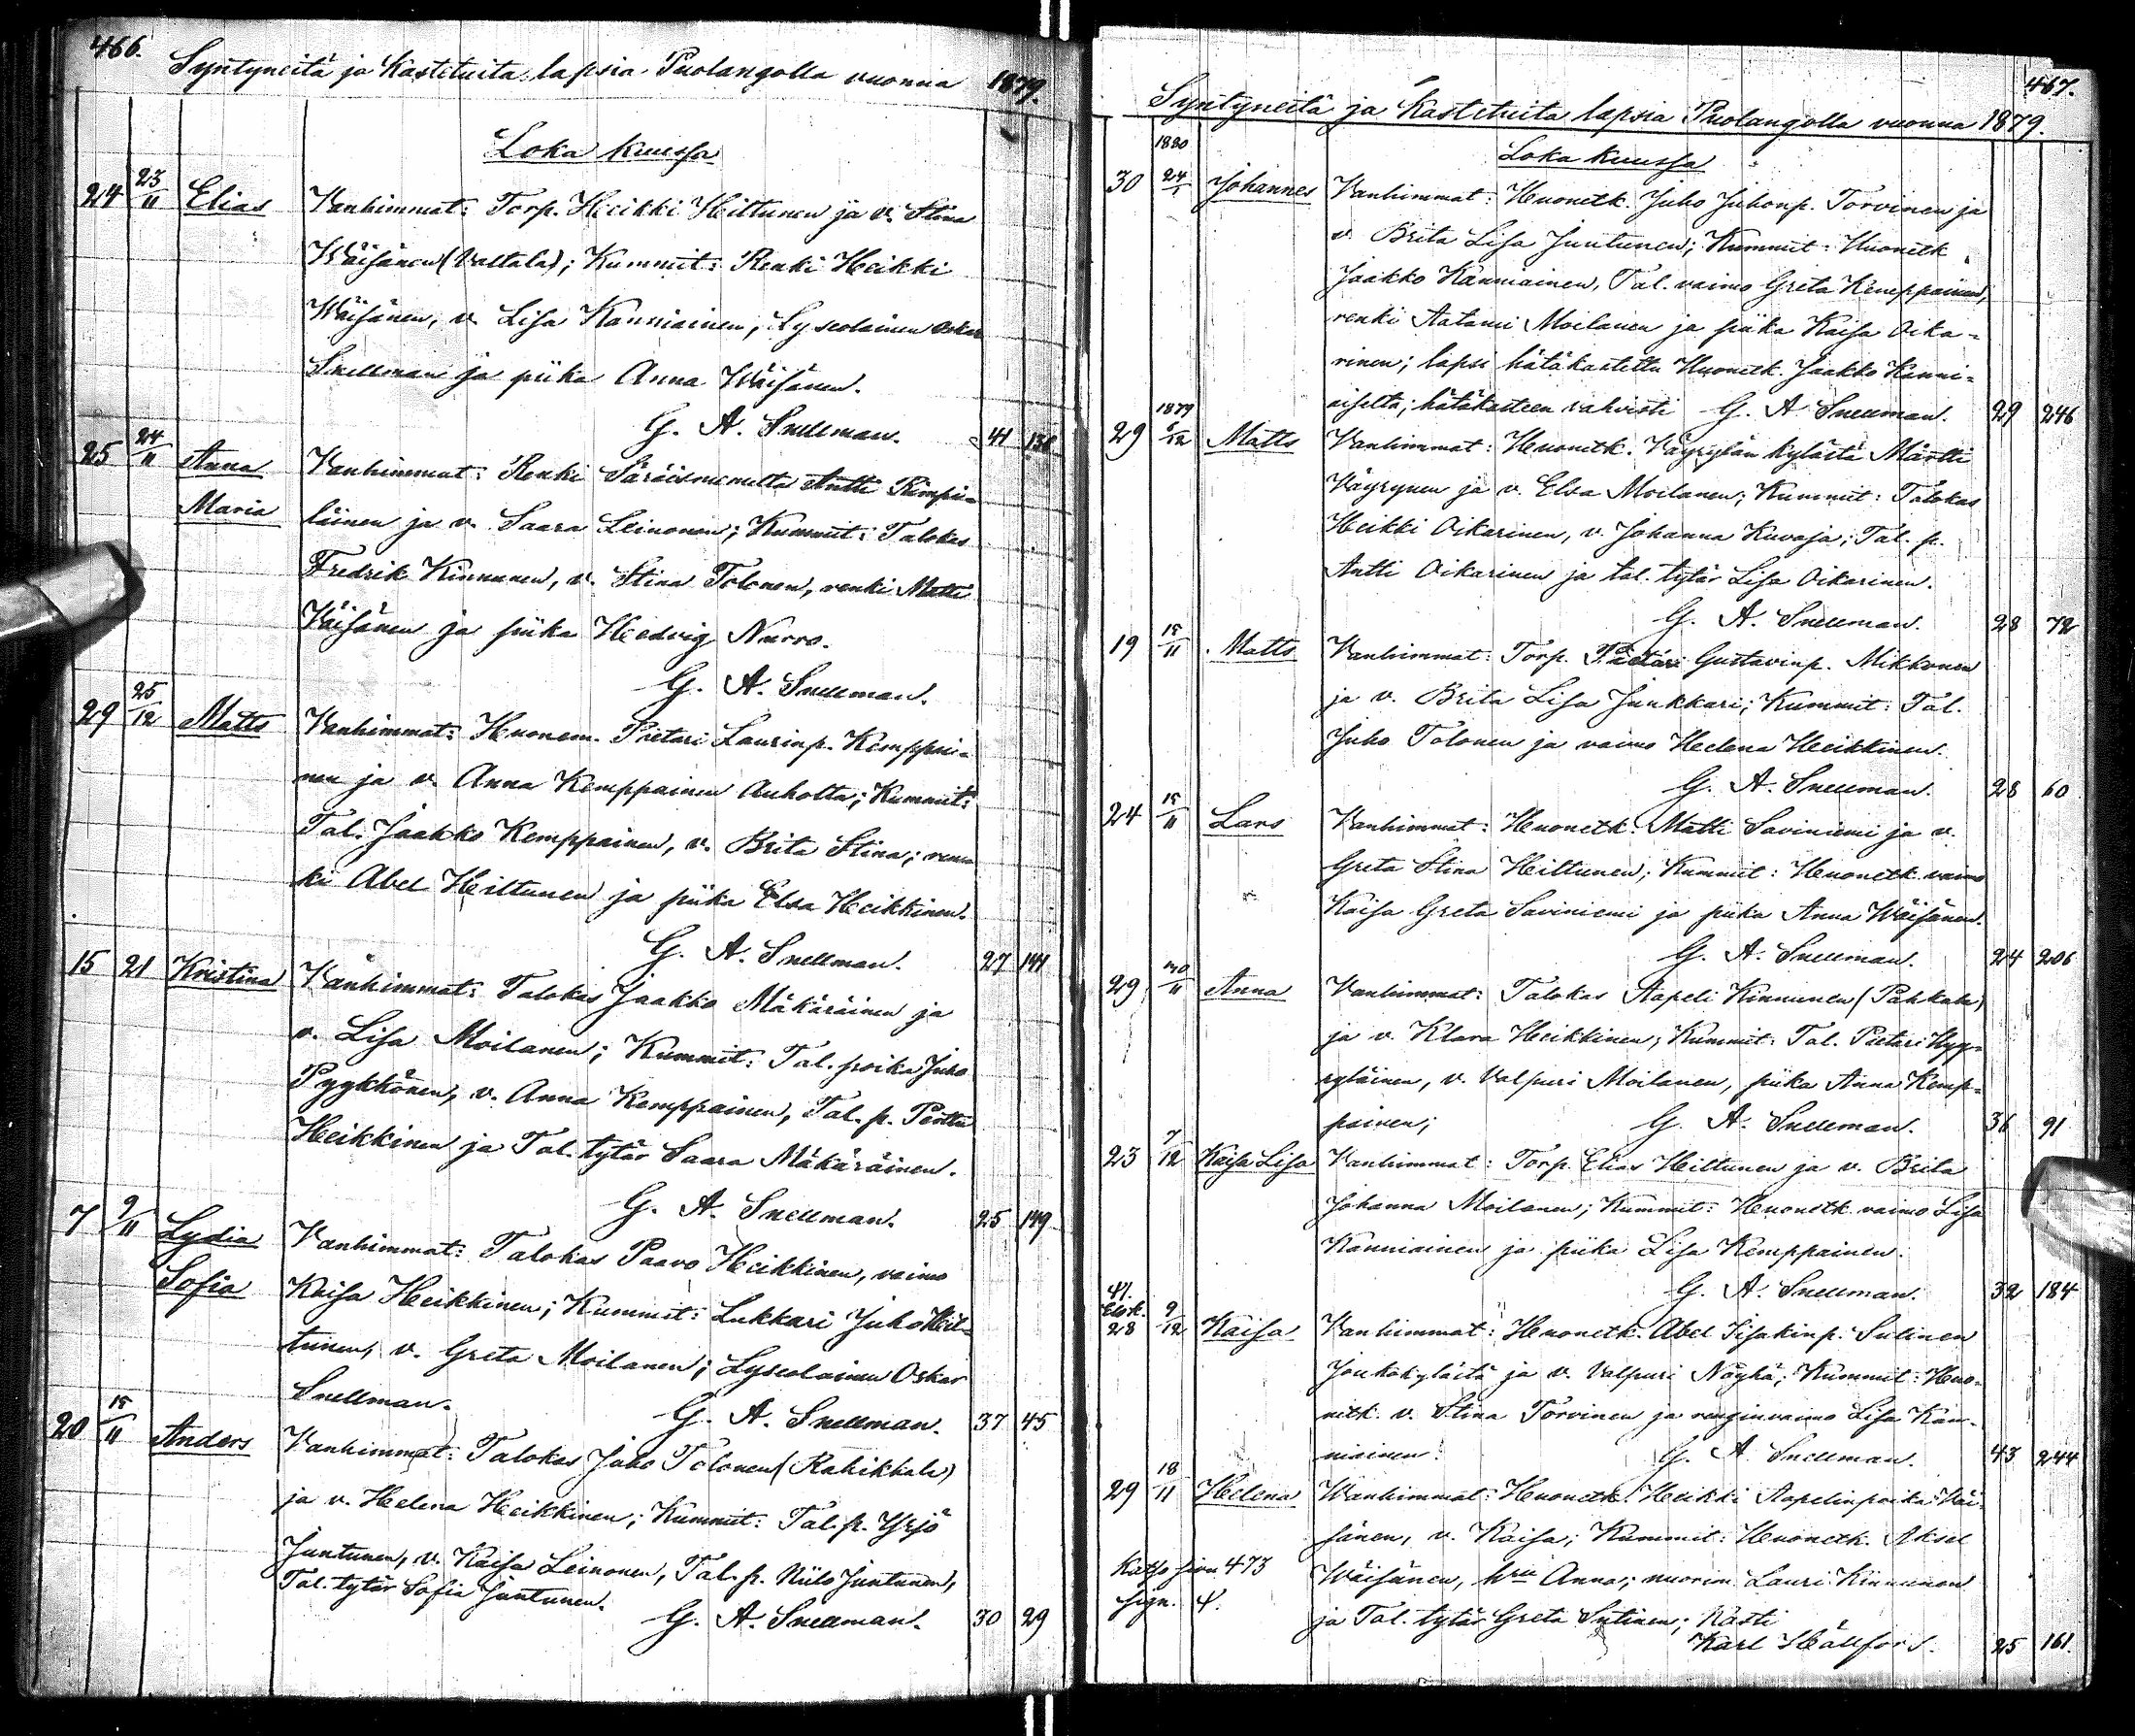 466.
Syntyneitä ja Kastetuita lapsia Puolangolla vuonna 1879.
Loka kuussa
24 23/11 Elias Vanhimmat: Torp. Heikki Hiltunen ja v. Stina
Wäisänen (Valtala); Kummit: Renki Heikki
Wäisänen, v. Lisa Kanniainen, Lyseolainen Oskar
Snellman ja piika Anna Wäisänen.
G. A. Snellman. 41 138
25 24/11 Anna Vanhimmat: Renki Säräisniemeltä Antti Kimpi-
Maria läinen ja v. Saara Leinonen; Kummit: Talokas
Fredrik Kinnunen, v. Stina Tolonen, renki Matti
Väisänen ja piika Hedvig Nurro.
G. A. Snellman.
29 25/12 Matts Vanhimmat: Huonem. Pietari Laurinp. Kemppai-
nen ja v. Anna Kemppainen Auholta; Kummit:
Tal. Jaakko Kemppainen, v. Brita Stina; ren-
ki Abel Hiltunen ja piika Elsa Heikkinen.
G. A. Snellman. 27 141
15 21 Kristina Vanhimmat: Talokas Jaakko Mäkäräinen ja
v. Lisa Moilanen; Kummit: Tal. poika Juho
Pyykkönen, v. Anna Kemppainen, Tal. p. Perttu
Heikkinen ja Tal. tytär Saara Mäkäräinen.
G. A. Snellman. 25 149
7 9/11 Lydia Vanhimmat: Talokas Paavo Heikkinen, vaimo
Sofia Kaisa Heikkinen; Kummit: Lukkari Juho Hil-
tunen, v. Greta Moilanen; Lyseolainen Oskar
Snellman. G. A. Snellman. 37 45
20 15/11 Anders Vanhimmat: Talokas Juho Tolonen (Rahikkala)
ja v. Helena Heikkinen; Kummit: Tal. p. Yrjö
Juntunen, v. Kaisa Leinonen, Tal. p. Niilo Juntunen,
Tal. tytär Sofia Juntunen.
G. A. Snellman. 30 29
467.
Syntyneitä ja Kastetuita lapsia Puolangolla vuonna 1879.
1880 Loka kuussa
30 24/1 Johannes Vanhimmat: Huonetk. Juho Juhonp. Torvinen ja
v. Brita Lisa Juntunen; Kummit: Huonetk
Jaakko Kanniainen, Tal. vaimo Greta Kemppainen,
renki Aatami Moilanen ja piika Kaisa Oika-
rinen; lapsi hätäkastettu Huonetk. Jaakko Kanni-
aiselta; hätäkasteen vahvisti G. A. Snellman. 29 246
1879
29 /12 Matts Vanhimmat: Huonetk. Väyrylän kylästä Martti
Väyrynen ja v. Elsa Moilanen; Kummit: Talokas
Heikki Oikarinen, v. Johanna Kuvaja; Tal. p.
Antti Oikarinen ja tal. tytär Lisa Oikarinen.
G. A. Snellman. 28 72
19 15/11 Matts Vanhimmat: Torp. Pietari Gustavinp. Mikkonen
ja v. Brita Lisa Junkkari; Kummit: Tal.
Juho Tolonen ja vaimo Helena Heikkinen.
G. A. Snellman. 28 60
24 15/11 Lars Vanhimmat: Huonetk. Matti Saviniemi ja v.
Greta Stina Hiltunen; Kummit: Huonetk. vaimo
Kaisa Greta Saviniemi ja piika Anna Wäisänen.
G. A. Snellman. 24 206
29 30/11 Anna Vanhimmat: Talokas Aapeli Kinnunen (Pahkala)
ja v. Klara Heikkinen; Kummit: Tal. Pietari Hyy-
ryläinen, v. Valpuri Moilanen, piika Anna Kemp-
painen; G. A. Snellman. 36 91
23 7/12 Kaisa Lisa Vanhimmat: Torp. Elias Hiltunen ja v. Brita
Johanna Moilanen; Kummit: Huonetk. vaimo Lisa
Kanniainen ja piika Lisa Kemppainen.
G. A. Snellman. 32 184
41.
Elok.
28 9/12 Kaisa Vanhimmat: Huonetk. Abel Iisakinp. Sutinen
Joukokylältä ja v. Valpuri Näykä; Kummit: Huo-
netk. v. Stina Torvinen ja renginvaimo Lisa Kan-
niainen. G. A. Snellman. 43 244
29 18/11 Helena Wanhimmat: Huonetk. Heikki Aapelinpoika Väi-
sänen, v. Kaisa; Kummit: Huonetk. Aksel
Katso sivu 473 Wäisänen, hra Anna; nuorim. Lauri Kinnunen
sign. 4. ja Tal. tytär Greta Sutinen; Kasti
Karl Hällfors. 25 161.